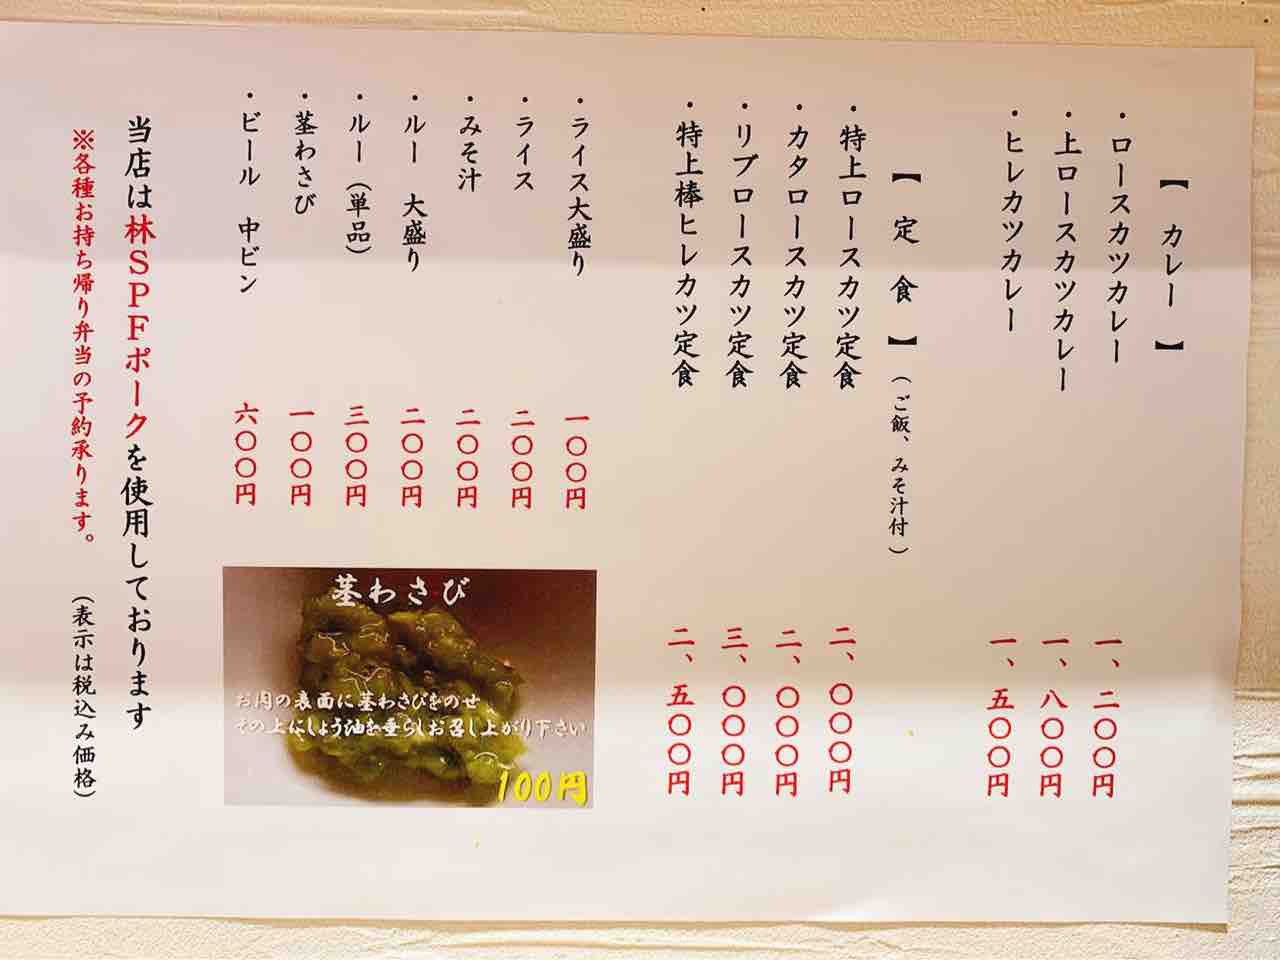 【 カレー 】
・ロースカツカレー 一、二〇〇円
・上ロースカツカレー 一、八〇〇円
・ヒレカツカレー 一、五〇〇円
【 定 食 】（ご飯、みそ汁付）
・特上ロースカツ定食 二、〇〇〇円
・カタロースカツ定食 二、〇〇〇円
・リブロースカツ定食 三、〇〇〇円
・特上棒ヒレカツ定食 二、五〇〇円
・ライス大盛り 一〇〇円
・ライス 二〇〇円
・みそ汁 二〇〇円
・ルー 大盛り 二〇〇円
・ルー（単品） 三〇〇円
・茎わさび 一〇〇円
・ビール 中ビン 六〇〇円
茎わさび
お肉の表面に茎わさびをのせ
その上にしょう油を垂らしお召し上がり下さい
100円
当店は林SPFポークを使用しております
※各種お持ち帰り弁当の予約承ります。（表示は税込み価格）